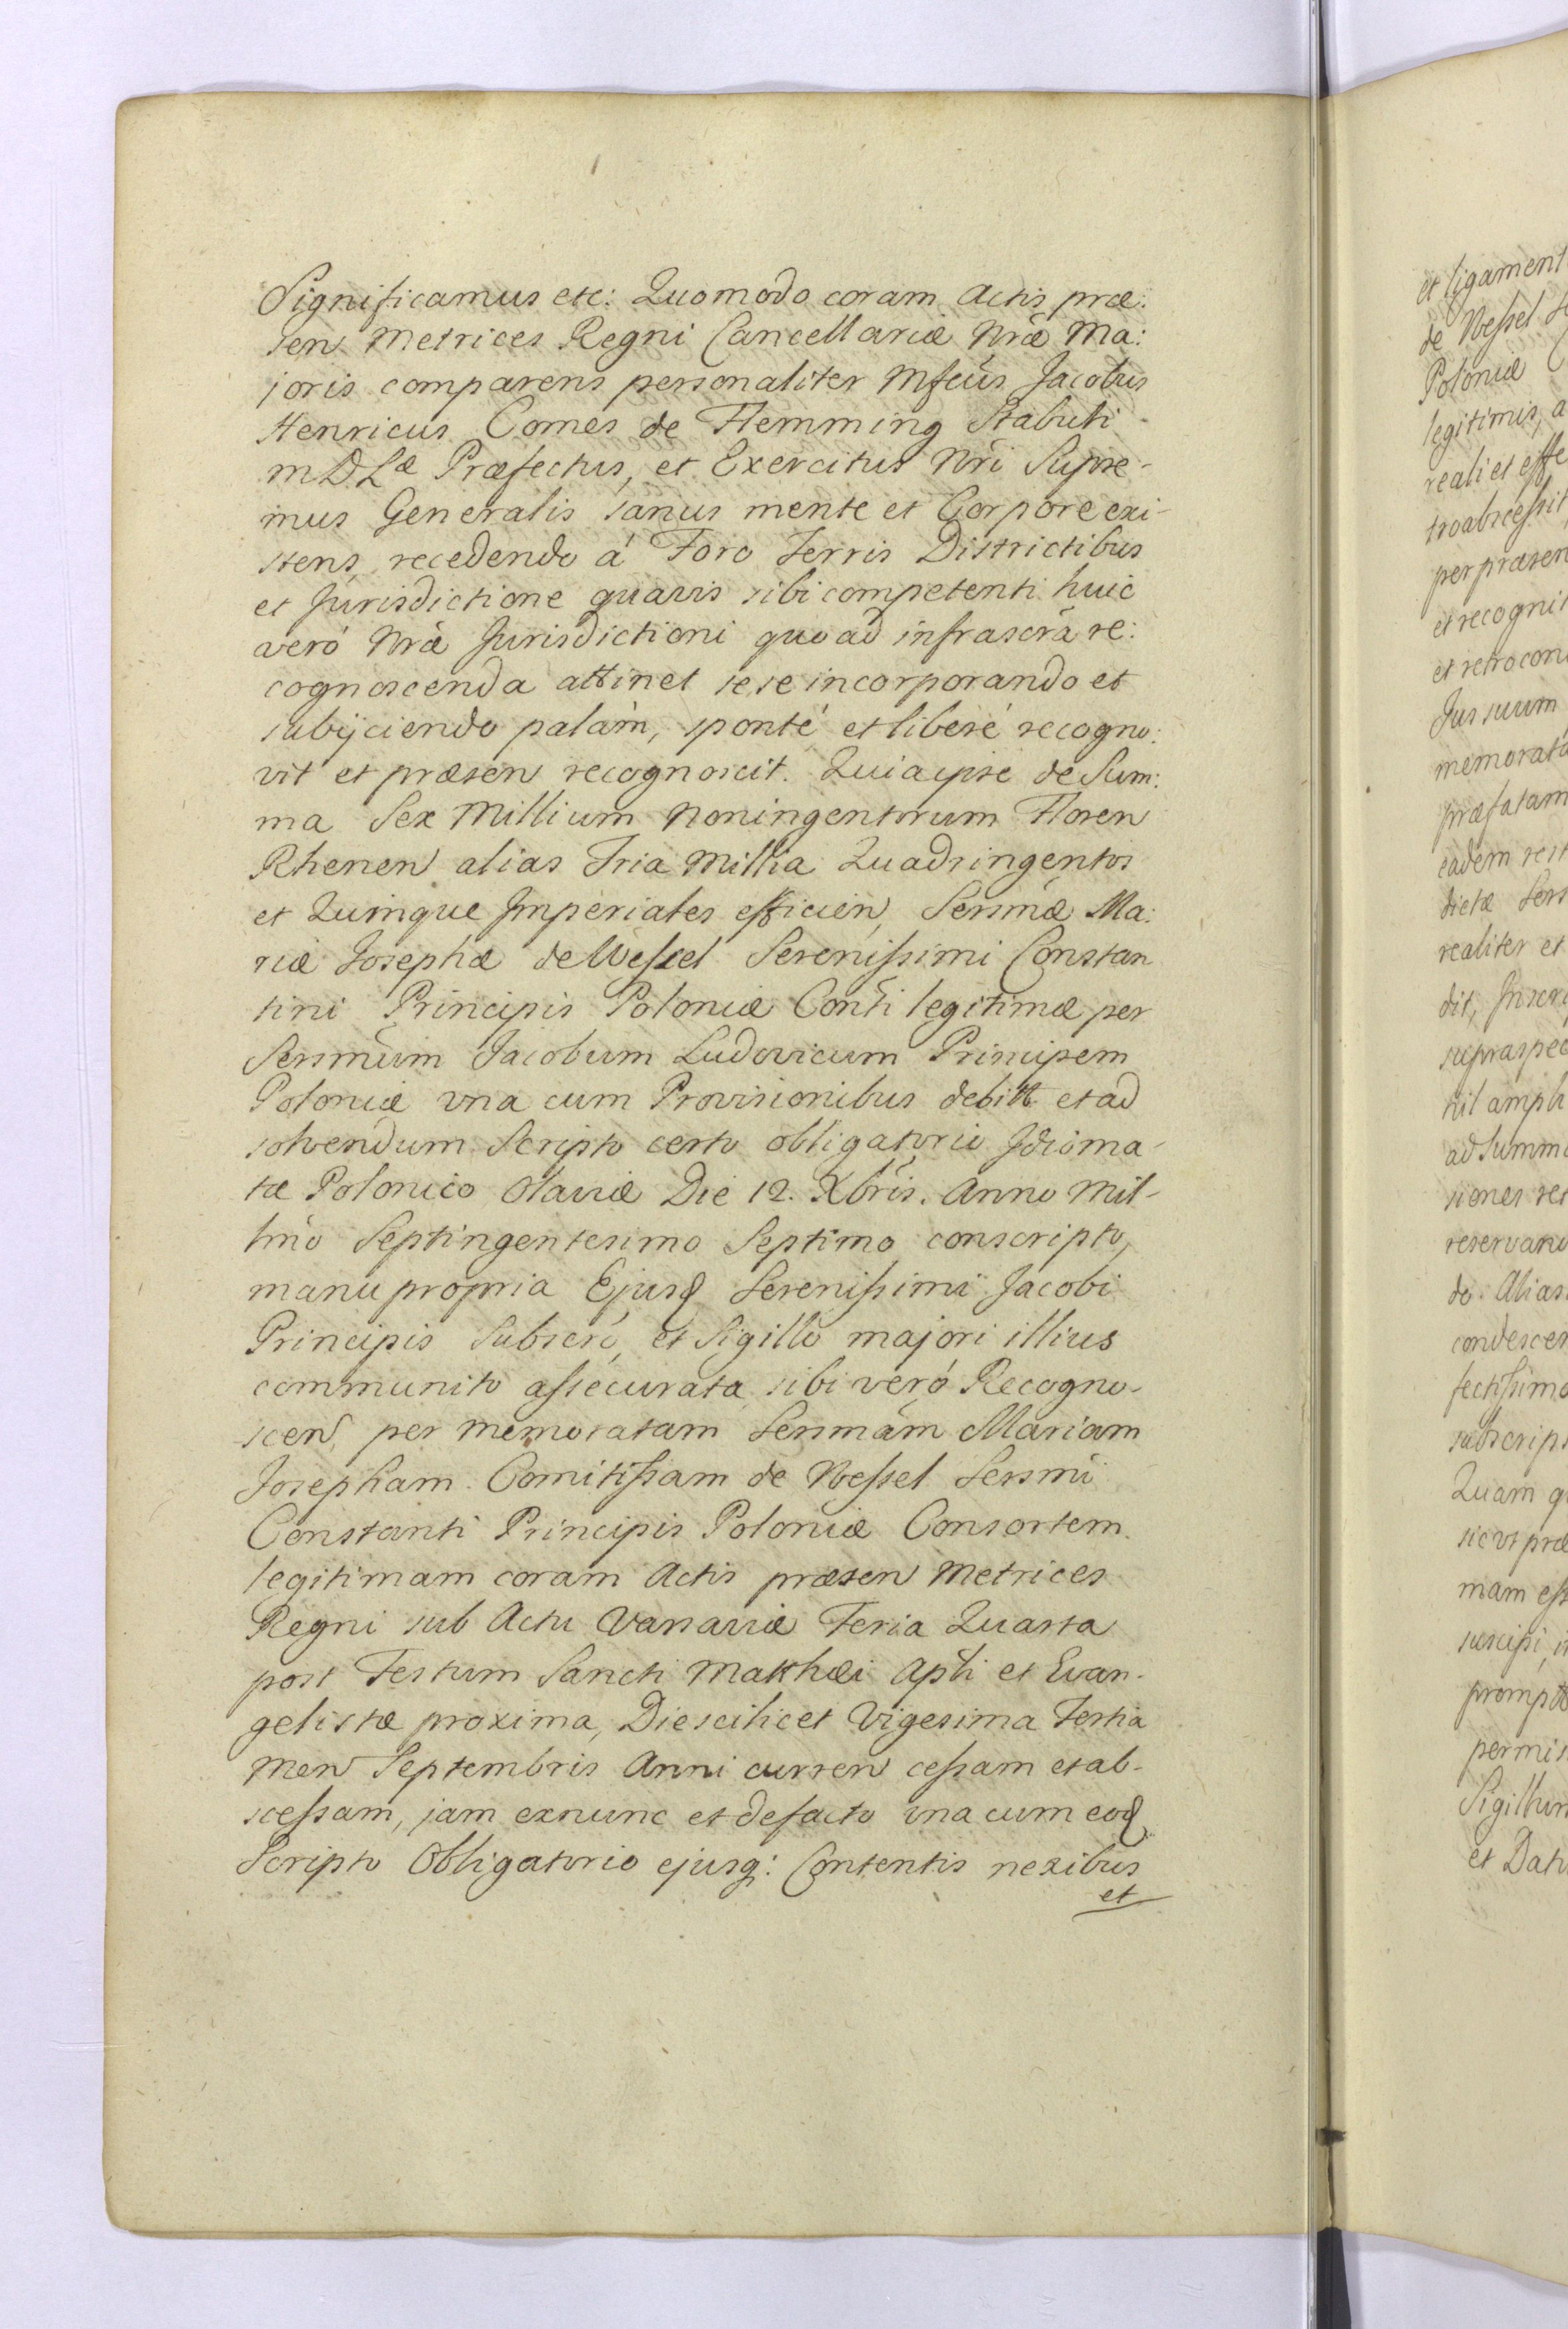 Significamus etc: Quomodo coram Actis præ:
sen Metrices Regni Cancellariæ Nræ Ma:
joris comparens personaliter Mfcus Jacobus
Henricus Comes de Flemming Stabuli
MDLæ Præfectus, et Exercitus Nri Supre-
mus Generalis sanus mente et Corpore exi-
stens, recedendo á Foro Terris Districtibus
et Jurisdictione quavis sibi competenti huic
veró Nræ Jurisdictioni quo ad infrascra re:
cognoscenda attinet se se incorporando et
subijciendo palám, sponté et liberé recogno:
vit et præsen recognoscit. Quia ipse de Sum:
ma Sex Millium Noningentorum Floren
Rhenen alias Tria Millia Quadringentos
et Quinque Imperiales efficien, Sersmæ Ma:
riæ Josephæ de Wessel Serenissimi Constan
tini Principis Poloniæ Conti legitimæ per
Sersmum Jacobum Ludovicum Principem
Poloniæ vna cum Provisionibus debitæ et ad
solvendum Scripto certo obligatorio Idioma-
te Polonico Olaviæ Die 12. Xbris. Anno Mil-
lmo Septingentesimo Septimo conscripto,
manu propria Ejusd Serenissimi Jacobi
Principis Subscró, et Sigillo majori illius
communito assecurata, sibi veró Recogno-
scen, per memoratam Sersmam Mariam
Josepham Comitissam de Wessel Sersmi
Constanti Principis Poloniæ Consortem
legitimam coram Actis præsen Metrices
Regni sub Actu Varsaviæ Feria Quarta
post Festum Sancti Matthæi Apti et Evan-
gelistæ proxima, Die scilicet Vigesima Tertia
Men Septembris Anni curren cessam et ab-
scessam, jam exnunc et defacto vna cum eod
Scripto Obligatorio ejusq: Contentis nexibus
et
et ligament
de Wessel
Poloniæ
legitimis, a
reali et effe
troabscessit
per præsen
et recognit
et retro con
Jus suum
memorata
præfatam
eadem rest
dictæ Sers
realiter et
dit, Inscri
supraspec
nil ampli
ad Summa
siones res
reservand
do. Alias
condescen
fectissimo
subscrips
Quam q
sicut præ
mam ess
suscipi, i
prompte
permis
Sigillum
et Datu